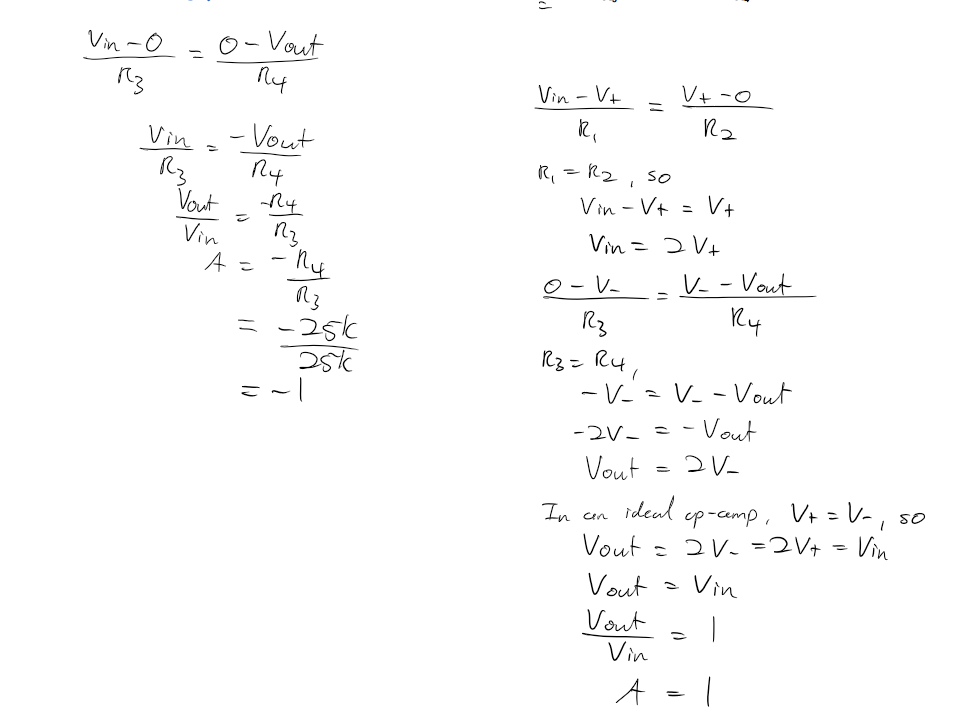 (Vin - 0)/R3 = (0 - Vout)/R4
Vin/R3 = -Vout/R4
Vout/Vin = -R4/R3
A = -R4/R3
= -25k/25k
= -1
=
(Vin - V+)/R1 = (V+ - 0)/R2
R1 = R2, so
Vin - V+ = V+
Vin = 2V+
(0 - V-)/R3 = (V- - Vout)/R4
R3 = R4,
-V- = V- - Vout
-2V- = -Vout
Vout = 2V-
In an ideal op-amp, V+ = V-, so
Vout = 2V- = 2V+ = Vin
Vout = Vin
Vout/Vin = 1
A = 1